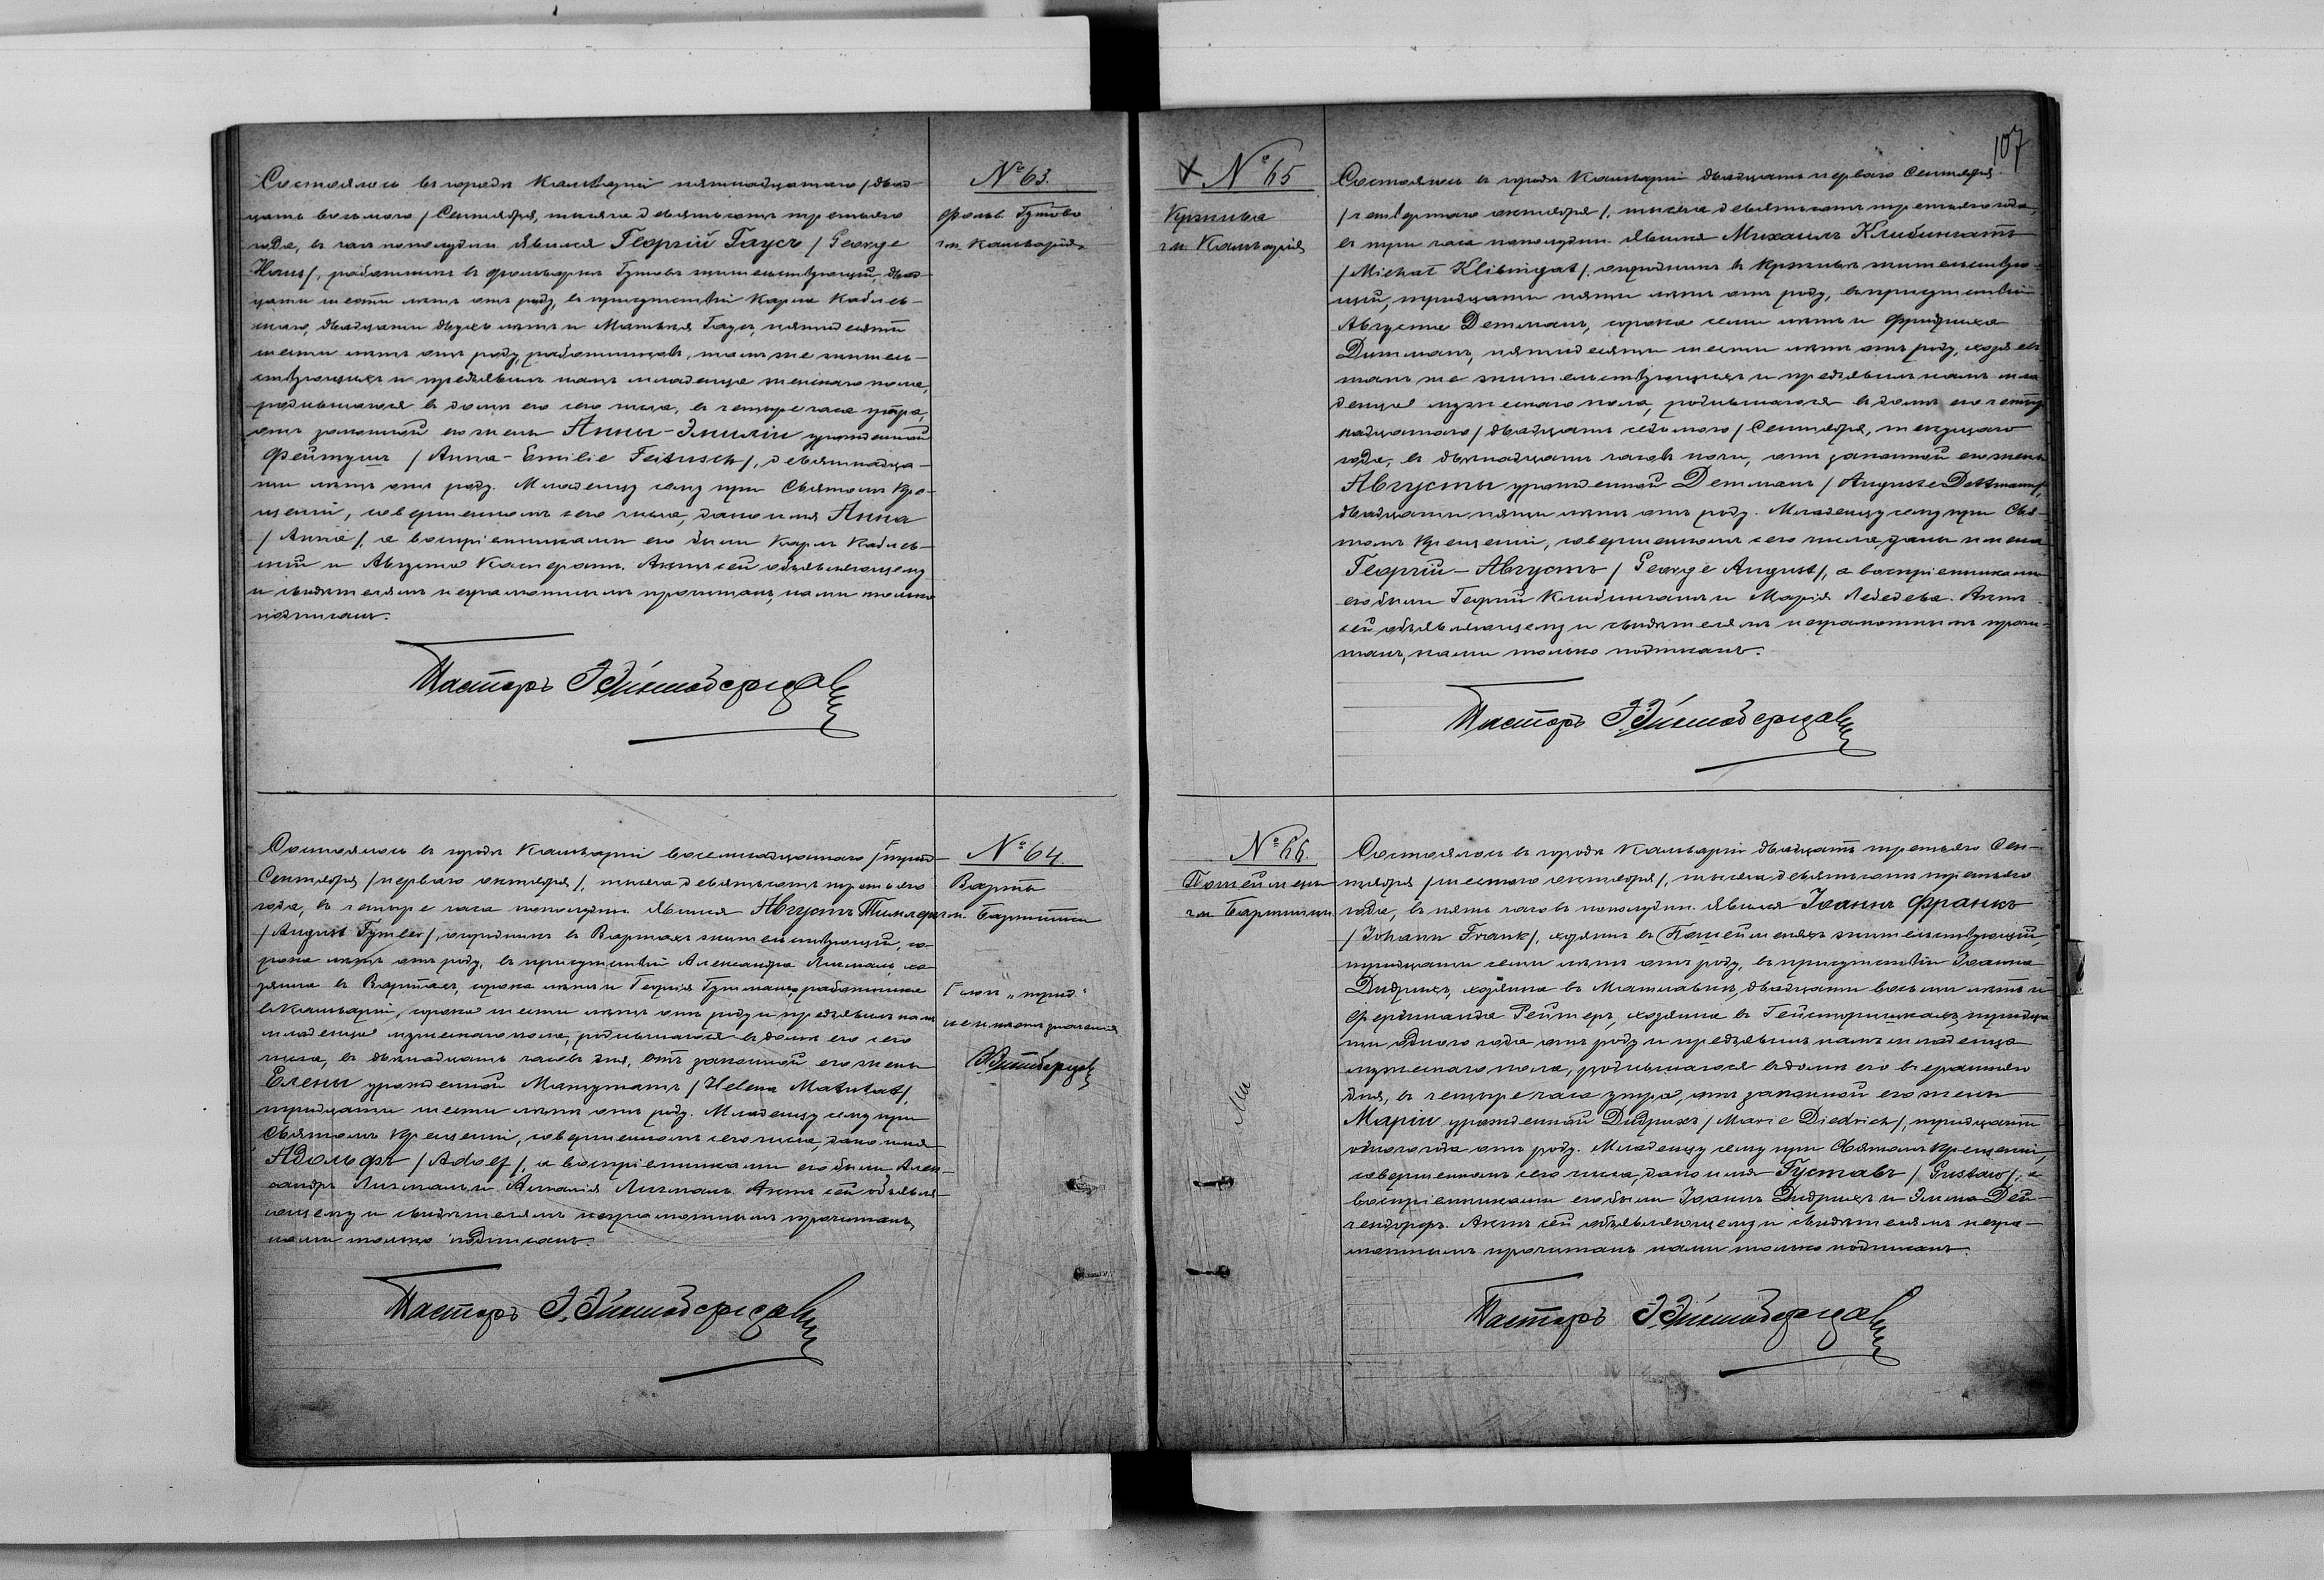 № 63.
фольв. Гутово
гм. Кальварія
Состоялось въ городѣ Кальваріи пятнадцатаго /двад-
цать восьмаго/ Сентября, тысяча девятьсотъ третьяго
года, въ часъ пополудни. Явился Георгій Гаусъ /George
Haus/, работникъ въ фольваркѣ Гутовѣ жительствующій, двад-
цати шести лѣтъ отъ роду, въ присутствіи Карла
двадцати двухъ лѣтъ и Гаусъ, пятидесяти
шести лѣтъ отъ роду, работниковъ, тамъ же житель-
ствующихъ и предъявилъ намъ младенца женскаго пола,
родившагося въ домѣ его сего числа, въ четыре часа утра
отъ законной его жены Анны-Эмиліи урожденной
Фейтушъ /Anna-Emilie Feitusch/, девятнадца-
ти лѣтъ отъ роду. Младенцу сему при Святомъ Кре-
щеніи, совершенномъ сего числа, дано имя Анна
/Anna/, а воспріемниками его были Карлъ
и Августа Актъ сей объявляющему
и свидѣтелямъ неграмотнымъ прочитанъ, нами только
подписанъ.
Пасторъ
№ 64.
Варты
гм. Бартники
Состоялось въ городѣ Кальваріи восемнадцатаго /трид-
Сентября /перваго октября/, тысяча девятьсотъ третьяго
года, въ четыре часа пополудни. Явился Августъ Тимлеръ
/August Tymler/, огродникъ въ Вартахъ жительствующій, со-
рока лѣтъ отъ роду, въ присутствіи Александра Лигмань, хо-
зяина въ Вартахъ, сорока лѣтъ и Георгія Гутманъ, работника
въ Кальваріи, сорока шести лѣтъ отъ роду и предъявилъ намъ
младенца мужескаго пола, родившагося въ домѣ его сего
числа, въ двѣнадцать часовъ дня, отъ законной его жены
Елены урожденной Матутатъ /Helena Matutat/,
тридцати шести лѣтъ отъ роду. Младенцу сему при
Святомъ Крещеніи, совершенномъ сего числа, дано имя
Адольфъ /Adolf/, а воспріемниками его были Алек-
сандръ Лигмань и Амалія Лигмань. Актъ сей объявля-
ющему и свидѣтелямъ неграмотнымъ прочитанъ,
нами только подписанъ.
Г слог „трид"
не имѣетъ значенія
Пасторъ
107
№ 65
гм. Кальварія
Состоялось въ городѣ Кальваріи двадцать перваго Сентября
/четвертаго октября/, тысяча девятьсотъ третьяго года,
въ три часа пополудни. Явился Михаилъ Клибингатъ
/Michał Klibingat/, огродникъ въ жительствую-
щій, тридцати пяти лѣтъ отъ роду, въ присутствіи
Августа Детманъ, сорока семи лѣтъ и Фридриха
Дитманъ, пятидесяти шести лѣтъ отъ роду, хозяевъ
тамъ же жительствующихъ и предъявилъ намъ мла-
денца мужескаго пола, родившагося въ домѣ его четыр-
надцатаго /двадцать седьмаго/ Сентября, текущаго
года, въ двѣнадцать часовъ ночи, отъ законной его жены
Августы урожденной Детманъ /Auguste Dettmann/,
двадцати пяти лѣтъ отъ роду. Младенцу сему при Свя-
томъ Крещеніи, совершенномъ сего числа, даны имена
Георгій-Августъ /George August/, а воспріемниками
его были Георгій Клибингатъ и Марія Лебедева. Актъ
сей объявляющему и свидѣтелямъ неграмотнымъ прочи-
танъ, нами только подписанъ.
Пасторъ
№ 66.
гм. Бартники
Состоялось въ городѣ Кальваріи двадцать третьяго Сен-
тября /шестого октября/, тысяча девятьсотъ третьяго
года, въ пять часовъ пополудни. Явился Іоаннъ Франкъ
/Johann Frank/, хозяинъ въ жительствующій,
тридцати семи лѣтъ отъ роду, въ присутствіи Іоанна
Дидрихъ, хозяина въ двадцати восьми лѣтъ и
Фердинанда Рейтеръ, хозяина въ тридца-
ти одного года отъ роду и предъявилъ намъ младенца
мужескаго пола, родившагося въ домѣ его вчерашняго
дня, въ четыре часа утра, отъ законной его жены
Маріи урожденной Дидрихъ /Marie Diedrich/, тридцати
одного года отъ роду. Младенцу сему при Святомъ Крещеніи,
совершенномъ сего числа, дано имя Густавъ /Gustaw/, а
воспріемниками его были Іоаннъ Дидрихъ и Эмма Дей-
Актъ сей объявляющему и свидѣтелямъ негра-
мотнымъ прочитанъ нами только подписанъ.
Пасторъ